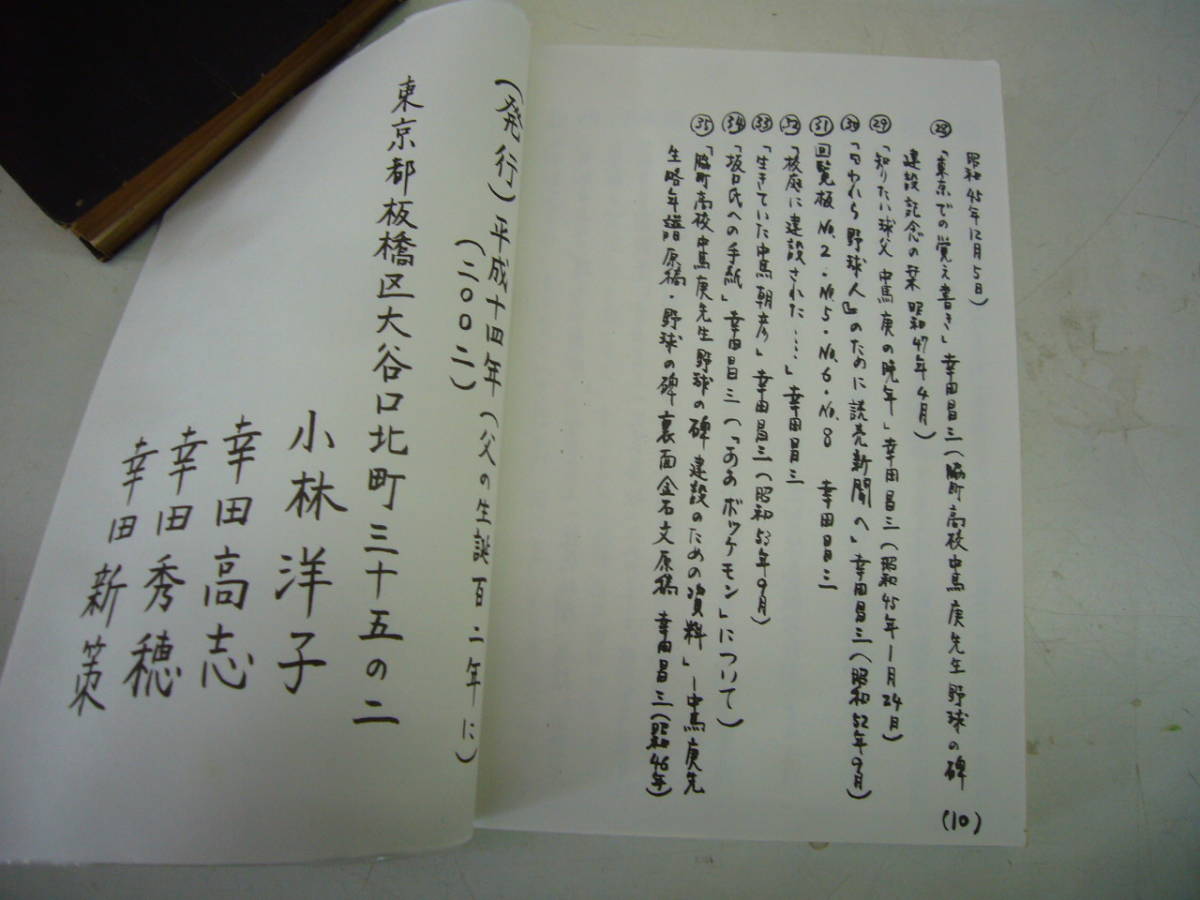 昭和45年12月5日)
㉘「東京での覚え書き」幸田昌三(脇町高校中馬庚先生野球の碑
建設記念の栞 昭和47年4月)
㉙「知りたい球父 中馬庚の晩年」幸田昌三(昭和45年1月24日)
㉚「『匂われら野球人』のために読売新聞へ」幸田昌三(昭和52年9月)
㉛回覧板 No.2・No.5・No.6・No.8 幸田昌三
㉜「校庭に建設された‥‥」幸田昌三
㉝「生きていた中馬朝彦」幸田昌三(昭和53年9月)
㉞「坂口氏への手紙」幸田昌三(「ああボッケモン」について)
㉟「脇町高校中馬庚先生野球の碑建設のための資料」―中馬庚先
生略年譜原稿・野球の碑裏面金石文原稿 幸田昌三(昭和46年)
(10)
(発行)平成十四年(父の生誕百二年に)
(二〇〇二)
東京都板橋区大谷口北町三十五の二
小林洋子
幸田高志
幸田秀穂
幸田新策